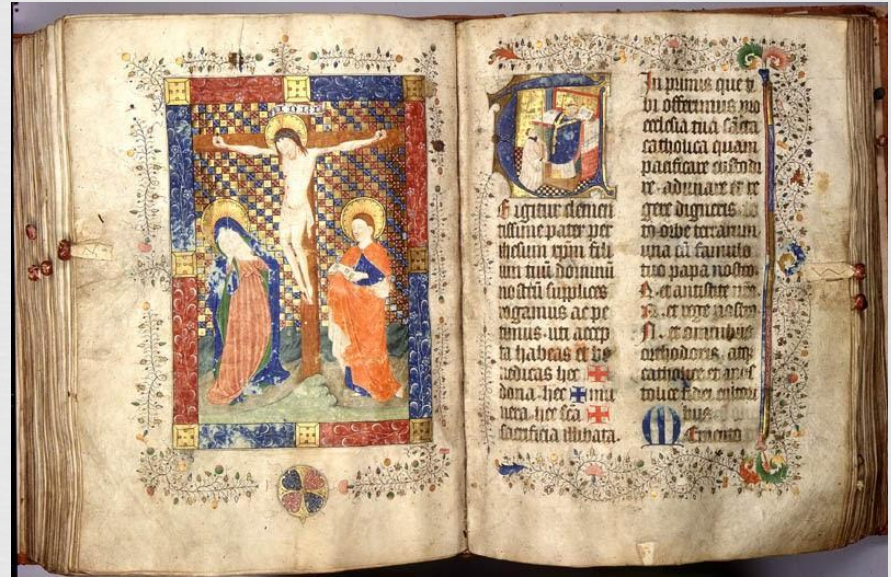 I N R I
TE igitur clemen
tissime pater per
ihesum xpm fili
um tuū dominū
nostrū supplices
rogamus ac pe
timus. uti accep
ta habeas et be
nedicas hec ✠
dona. hec ✠ mu
nera. hec scā ✠
sacrificia illibata.
In primis que ti
bi offerimus pro
ecclesia tua sācta
catholica quam
pacificare custodi
re. adunare et re
gere digneris
orbe terrarum
una cū famulo
tuo papa nostro
N. et antistite
N. et rege nostro
N. et omnibus
orthodoxis. atq
catholice et apos
tolice fidei cultori
bus
Memento